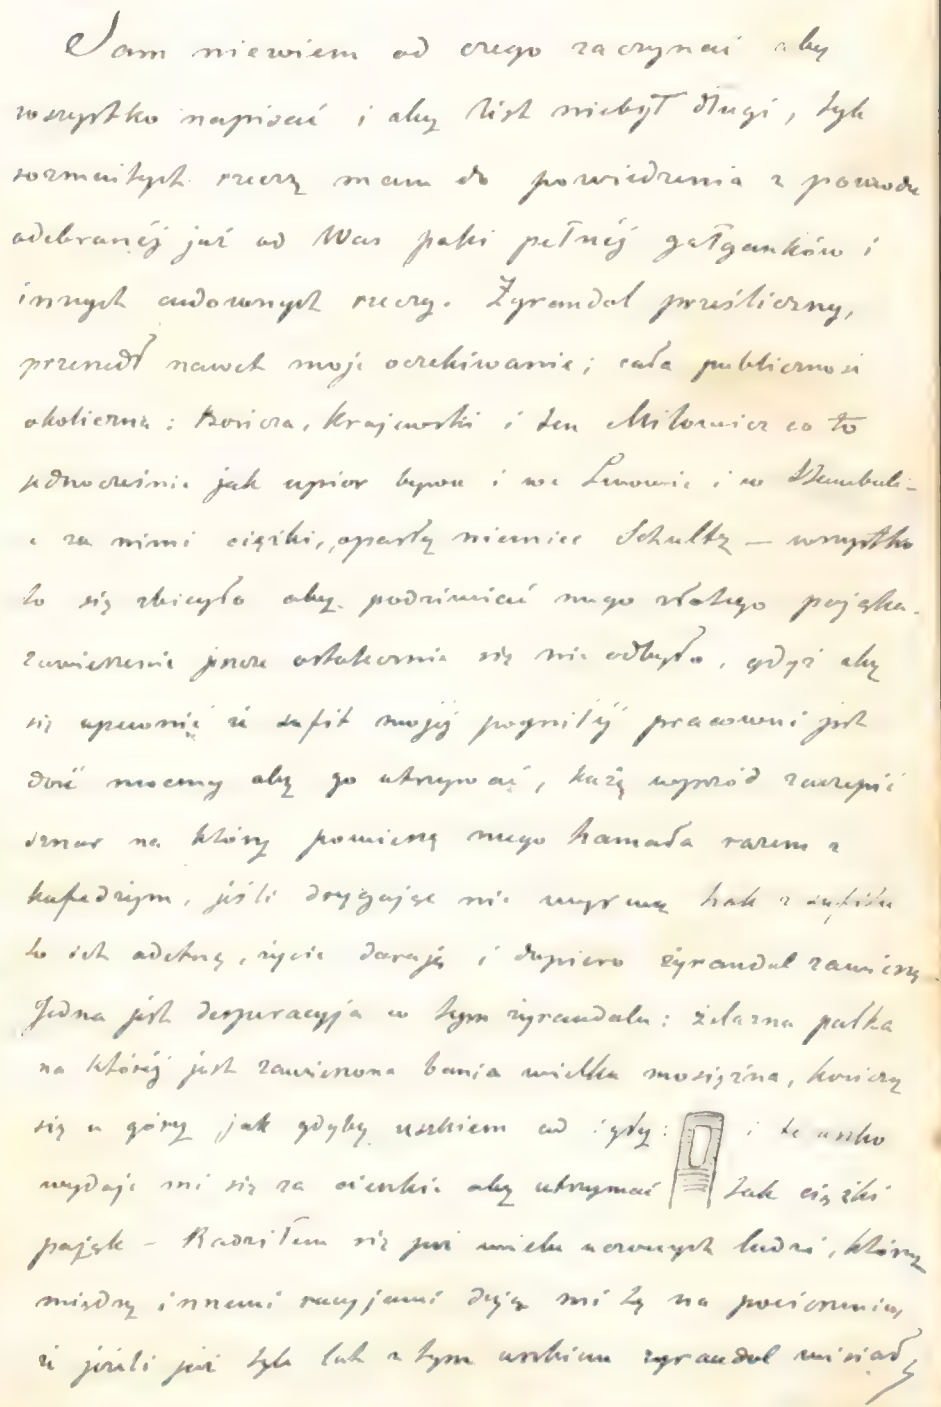 Sam niewiem od czego zaczynać aby
wszystko napisać i aby list niebył długi, tyle
rozmaitych rzeczy mam do powiedzenia z powodu
odebranéj już od Was paki pełnéj gałganków i
innych cudownych rzeczy. Żyrandol prześliczny,
przeszedł nawet moje oczekiwanie; cała publiczność
okoliczna: Krajewski i ten Miłowicz co to
jednocześnie jak upior bywa i we Lwowie i w Stambule –
a za nimi ciężki, opasły niemiec Schultz — wszystko
to się zbiegło aby podziwiać mego złotego pająka.
zawieszenie jeszcze ostatecznie się nie odbyło, gdyż aby
się upewnić że sufit mojéj pogniłéj pracowni jest
dość mocny aby go utrzymać, każę wprzód zaczepić
sznur na który powieszę mego hamała razem z
kafedżym, jeśli drygając nie wyrwą hak z sufitu
to ich odetnę, życie daruję i dopiero żyrandol zawieszę
Jedna jest desperacyja w tym żyrandolu: żelazna pałka
na któréj jest zawieszona bania wielka mosiężna, kończy
się u góry jak gdyby uszkiem od igły: i te uszko
wydaje mi się za cienkie aby utrzymać tak ciężki
pająk – Radziłem się już wielu uczonych ludzi, którzy
między innemi racyjami dają mi tę na pocieszenie,
że jeżeli już tyle lat z tym uszkiem żyrandol wisiał,